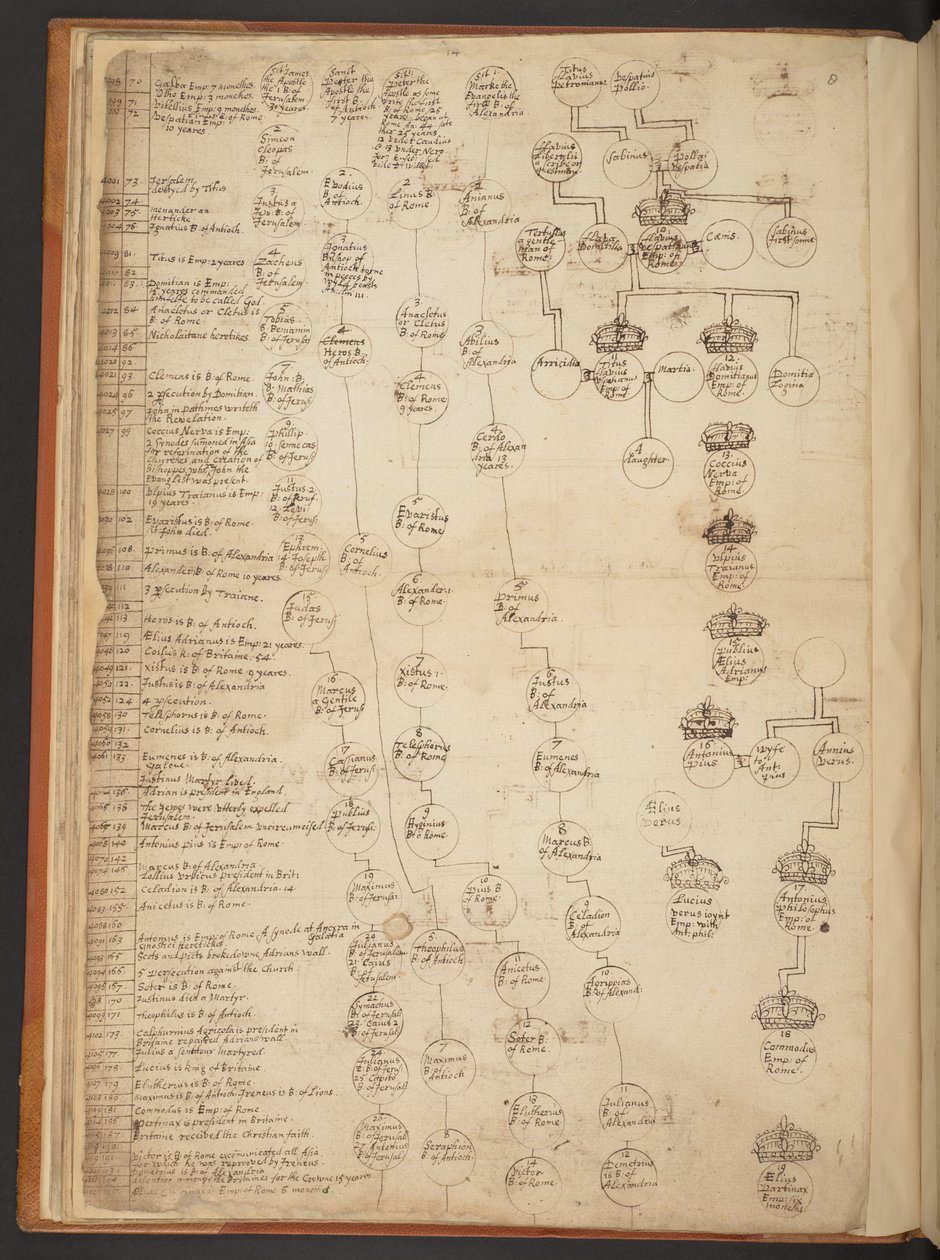 14
8
3998 70 Galba Emp: 7 monethes.
Otho Emp: 3 monethes.
71 Vitellius Emp: 9 monethes.
72 Vespatian Emp:
10 yeares
Linus B: of Rome
4001 73. Jerusalem
destroyed by Titus
4002 74
4003 75 Menander an
Hereticke
4004 76 Ignatius B: of Antioch.
4009 81. Titus is Emp: 2 yeares
4010 82
4011 83. Domitian is Emp:
15 yeares commanded
himselfe to be called God.
4012 84 Anacletus or Cletus is
B: of Rome.
4013 85 Nicholaitane heretikes.
4014 86
4020 92
4021 93. Clemens is B: of Rome.
4024 96 2 psecution by Domitian.
4025 97 John in pathmes writeth
the Revelation.
4027 99 Coccius Nerva is Emp:
2 Synodes sumoned in Asia
for reformation of the
Churches and creation of
Bishoppes, whe John the
Evanglist was present.
4028 100 Vlpius Traianus is Emp:
19 yeares.
4030 102 Evaristus is B: of Rome.
St John died.
4036 108. Primus is B: of Alexandria
4038 110 Alexander B: of Rome 10 yeares
111 3 psecution by Traiane.
112
113 Heros is B: of Antioch.
4047 119 Ælius Adrianus is Emp: 21 yeares.
4048 120 Coilus k: of Britaine. 54.
4049 121. Xistus is B: of Rome. 9 yeares.
4050 122. Justus is B: of Alexandria
4052 124 4 psecution.
4058 130 Telesphorus is B: of Rome.
4059 131. Cornelius is B: of Antioch.
4060 132
4061 133 Eumenes is B: of Alexandria.
Justinus Martyr lived.
4064 136 Adrian is president in England.
4066 138 The Jewes were utterly expelled
Jerusalem.
4067 139 Marcus B: of Jerusalem vncircumcised.
4068 140 Antonius pius is Emp: of Rome.
4070 142
4074 146 Marcus B: of Alexandria.
Lollius vrbicus president in Brit:
4080 152 Celadion is B: of Alexandria. 14
4083 155. Anicetus is B: of Rome.
4088 160
4091 163 Antonius is Emp: of Rome. A synode at Ancyra in
Galatia
Gnostici heretickes
4093 165 Scots and picts broke downe Adrians wall.
4094 166. 5 persecution against the Church.
4095 167. Soter is B: of Rome.
170 Justinus died a Martyr.
4099 171 Theophilus is B: of Antioch.
4101 173. Calphurnius Agricola is president in
Britaine repaired Adrians wall.
4105 177 Julius a senatour Martyred.
178. Lucius is king of Britaine.
4107 179 Elutherius is B: of Rome.
180 Maximus is B: of Antioch. Ireneus is B: of Lions.
4109 181 Commodus is Emp: of Rome.
Pertinax is president in Britaine.
Britaine received the Christian faith.
Victor is B: of Rome excomunicated all Asia
for which he was reproved by Ireneus.
Demetrius is B: of Alexandria
dissention amonge the Britaines for the Crowne 15 yeares
is Emp: of Rome 6 moneths.
St James
the Apostle
the 1 B: of
Jerusalem
30 yeares
2.
Simeon
Cleopas
B: of
Jerusalem.
3.
Justus a
Jew: B: of
Jerusalem
4
Zacheus
B: of
Jerusalem
5
Tobias.
6. Beniamin
B: of Jerusa:
7
John: B:
8. Mathias
B: of Jerus:
9.
Phillip.
10. Senecas
B: of Jerus:
11
Justus. 2
B: of Jerus.
12. Levi:
B: of Jerus:
13
Ephrem.
14. Joseph
B: of Jerus:
15.
Judas
B: of Jerus:
16
Marcus
a Gentile
B: of Jerus:
17
Cassianus
B: of Jerus:
18
Publius
B: of Jerus:
19
Maximus
B: of Jerusa:
20
Julianus
B: of Jerusalem
21 Caius
B: of
Jerusalem.
22
Symachus
B: of Jerusal:
23. Caius 2
B: of Jerusal:
24.
Julianus
2. B: of Jerus:
25 Capito
B: of Jerusal:
26.
Maximus
B: of Jerusal:
27 Antonius
B: of Jerusal:
Sanct
Peter the
Apostle the
first B:
of Antioch
7 yeares.
2.
Evodius
B: of
Antioch.
3
Ignatius
Bishop of
Antioch torne
in peeces by
wyld beasts
An: dm 111.
4.
Clemens
Heros. B:
of Antioch:
5
Cornelius
B: of
Antioch.
6
Theophilus
B: of Antioch.
7
Maximus
B: of
Antioch
8
Seraphion
B: of Antioch.
St:
Peter the
Apostle as some
write the first
B: of Rome. 25
yeares: began at
Rome An: 44. sate
ther 25 yeares
12 vnder Claudius
& 13 vnder Nero.
2
Linus B:
of Rome
3.
Anacletus
or Cletus
B: of Rome
4
Clemens
B: of Rome
9 yeares.
5
Evaristus
B: of Rome
6
Alexander. 1.
B: of Rome.
7
Xistus. 1.
B: of Rome.
8
Telesphorus
B: of Rome
9
Higinius
B: of Rome.
10
Pius B
of Rome.
11
Anicetus
B: of Rome.
12
Soter B:
of Rome.
13
Elutherus
B: of Rome
14
Victor
B: of Rome.
Sit:
Marke the
Evangelis the
first B: of
Alexandria.
2
Anianus
B: of
Alexandria
3
Abilius
B: of
Alexandria
4
Cerdo
B: of Alexan
dria 13
yeares.
5
Primus
B: of
Alexandria.
6
Justus
B: of
Alexandria
7
Eumenes
B: of Alexandria
8
Marcus B
of Alexandria
9
Celadion
B: of
Alexandria
10
Agrippias
B: of Alexand:
11
Julianus
B: of
Alexandria
12
Demetrius
is B: of
Alexandria
Titus
flavius
Petronianus
Vespatius
Pollio.
Flavius
Liberalis
a scribe or
Questman.
Sabinus
3
Polla
Vespatia
Tertullus
a gentle
man of
Rome.
Flavia
Domitilla
3
10
Flavius
Vespatianus
Emp: of
Rome
&
Cænis.
Sabinus
first sonne
Arricidia
&
11
Titus
flavius
Vespatianus
Emp: of
Rome
3
Martia.
12.
Flavius
Domitianus
Emp: of
Rome.
Domitia
Logina
A
daughter.
13.
Coccius
Nerva
Emp: of
Rome.
14
Vlpius
Traianus
Emp: of
Rome
15
Publius
Ælius
Adrianus
Emp:
16
Antonius
pius
3
wyfe
to
Ant:
pius
Annius
verus.
Ælius
verus
Lucius
verus ioynt
Emp: with
Ant: phil:
17
Antonius
philosophus
Emp: of
Rome
18
Commodus
Emp: of
Rome.
19
Ælius
Partinax
Emp: six
moneths